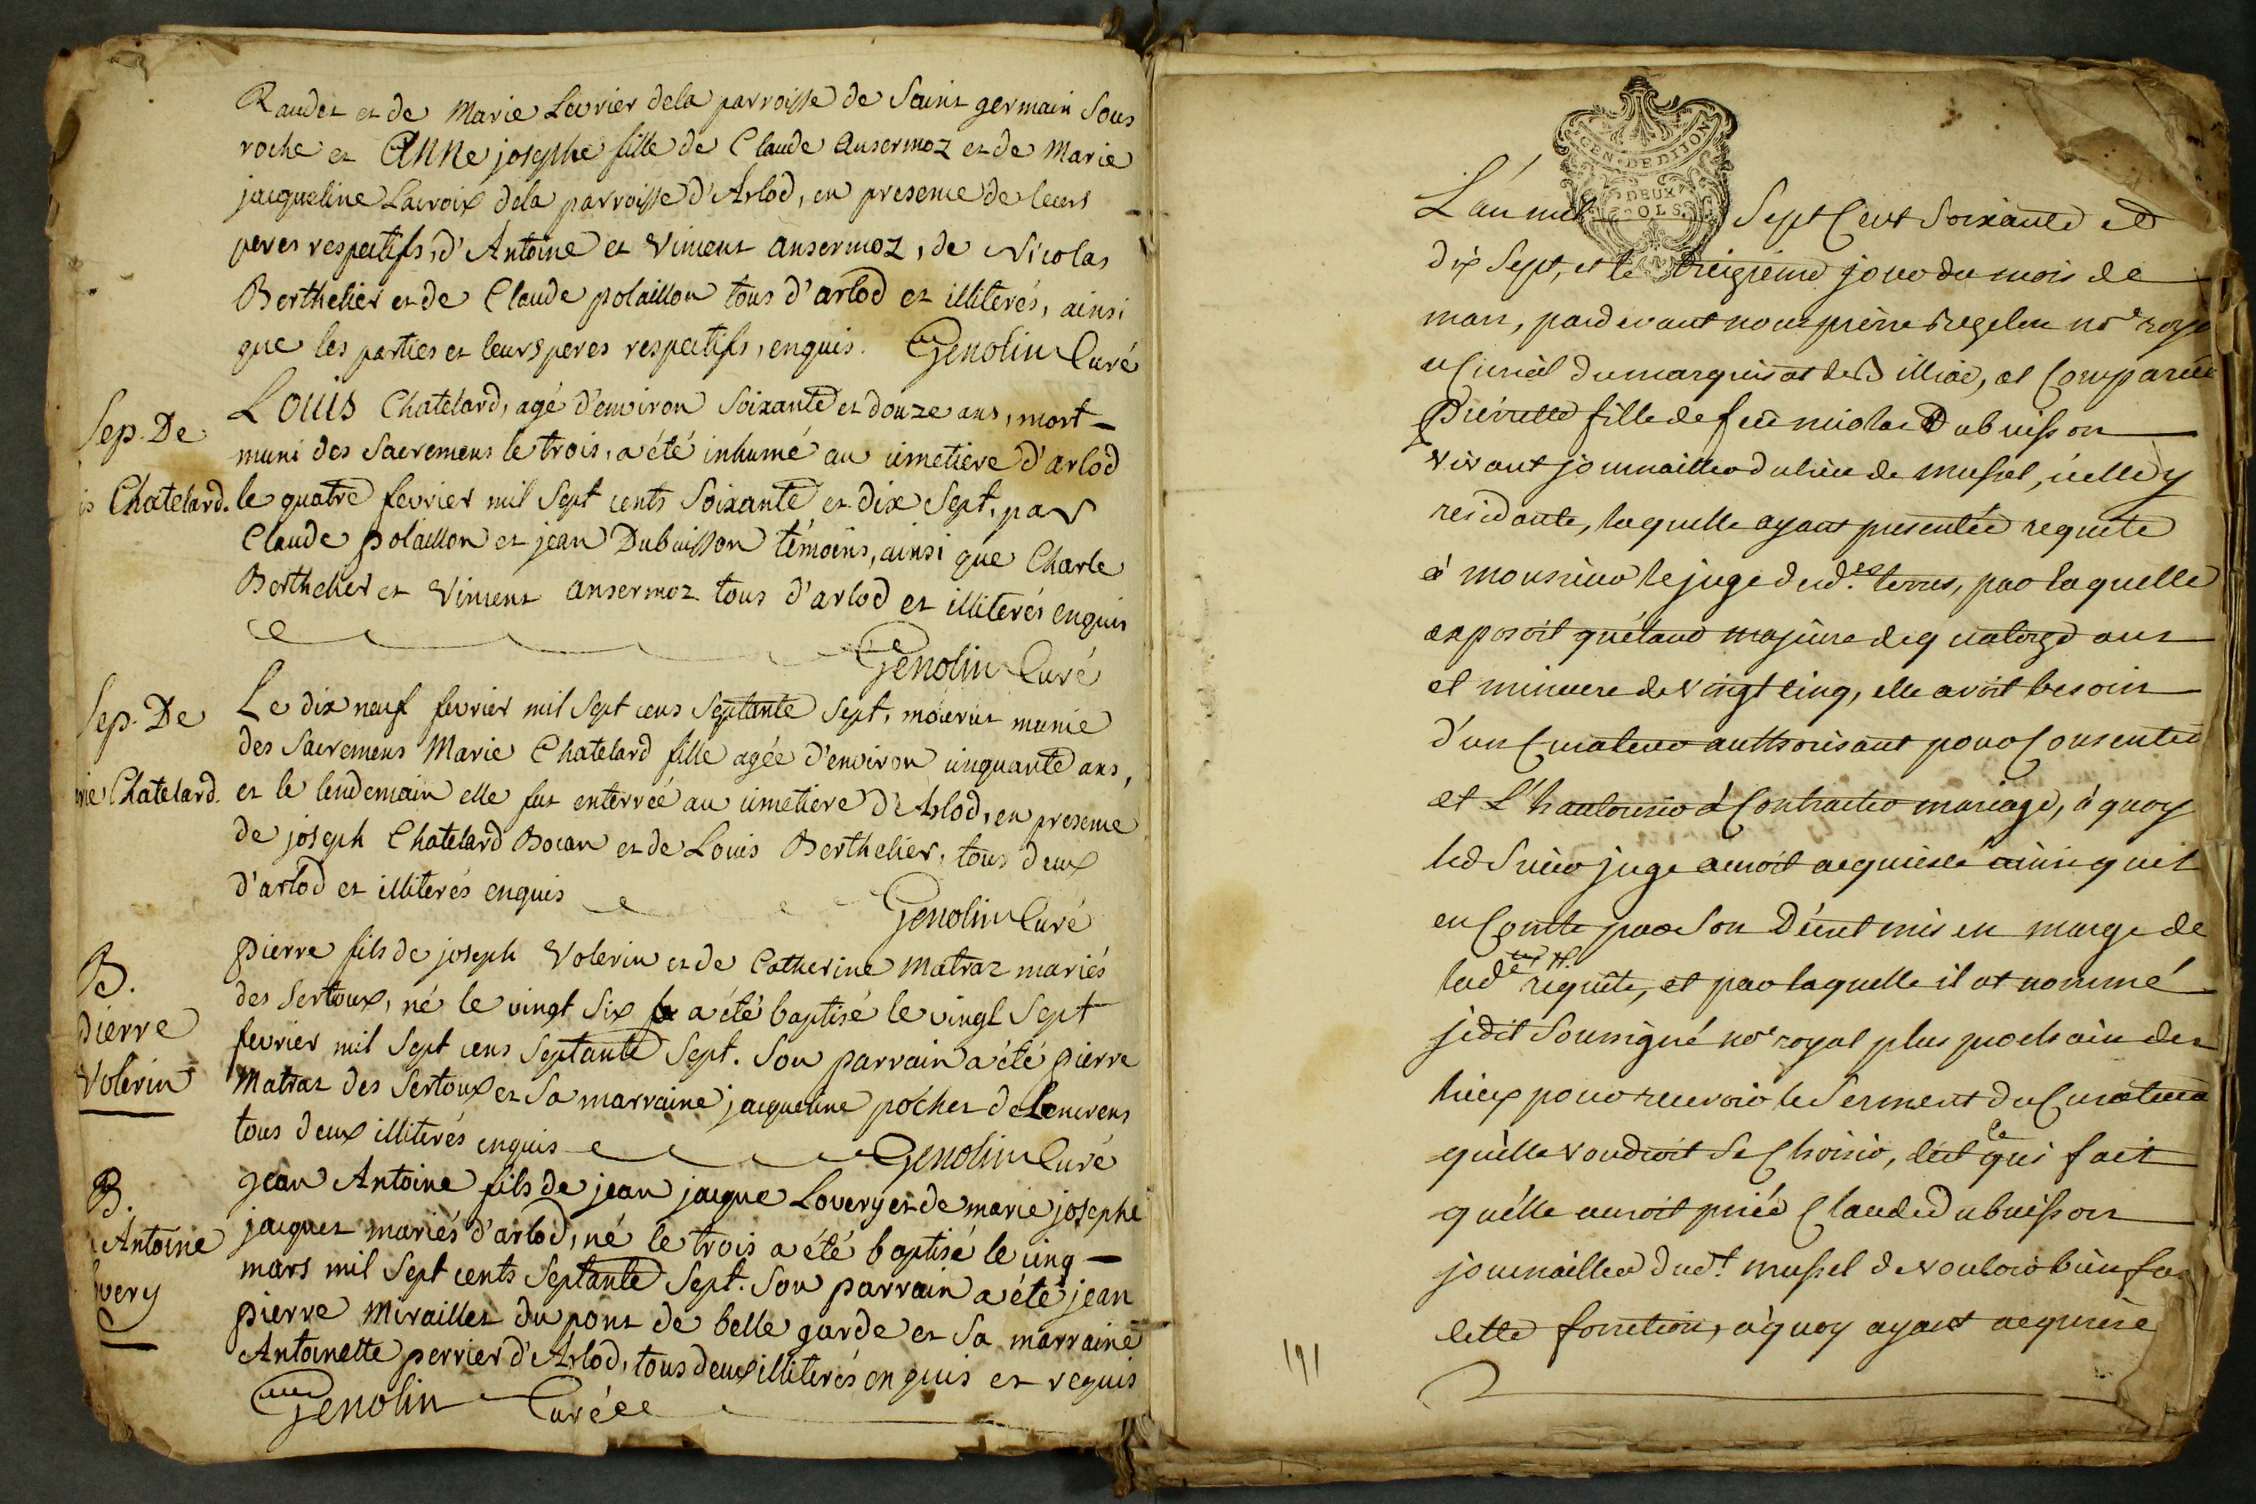 Raudet et de Marie Levrier dela parroisse de Saint germain Sous
roche et Anne josephe fille de Claude Ansermoz et de Marie
jacqueline Lacroix dela parroisse d'Arlod, en presence de leurs
peres respectifs, d'Antoine et Vincent Ansermoz, de Nicolas
Berthelier et de Claude polaillon tous d'arlod et illiterés, ainsi
que les parties et leurs peres respectifs, enquis. Genolin Curé
Sep. De
is Chatelard.
Louis Chatelard, agé d'environ Soixante et douze ans, mort
muni des Sacremens le trois, a été inhumé au cimetiere d'arlod
le quatre fevrier mil Sept cents Soixante et dix Sept, par
Claude polaillon et jean Dubuisson témoins, ainsi que Charle
Berthelier et Vincent ansermoz tous d'arlod et illiterés enquis
Genolin Curé
Sep. De
rie Chatelard.
Le dix neuf fevrier mil Sept cens Septante Sept, mourut munie
des Sacremens Marie Chatelard fille agée d'environ cinquante ans,
et le lendemain elle fut enterreé au cimetiere d'Arlod, en presence
de joseph Chatelard Bocan et de Louis Berthelier, tous deux
d'arlod et illiterés enquis
Genolin Curé
B.
pierre
Volerin
pierre fils de joseph Volerin et de Catherine Matraz mariés
des Sertoux, né le vingt Six a été baptisé le vingt Sept
fevrier mil Sept cens Septante Sept. Son parrain a été pierre
Matraz des Sertoux et Sa marraine jacqueline pochet de
tous deux illiterés enquis Genolin Curé
B.
Antoine
overy
jean Antoine fils de jean jacque Lovery et de marie josephe
jacquet mariés d'arlod, né le trois a été baptisé le cinq
mars mil Sept cents Septante Sept. Son parrain a été jean
pierre Miraillet du pont de belle garde et Sa marraine
Antoinette perrier d'Arlod, tous deux illiterés enquis et requis
Genolin Curé
GEN. DE DIJON
DEUX
SOLS
L'an mil Sept Cent Soixante et
dix Sept, et le treizieme jour du mois de
mars, pardevant nous pierre no.e roy
et Curial du marquisat de Billiad, at Comparüe
Pierrette fille de feu nicolas Dubuisson
vivant journaillier du lieu de mussel, icelle y
residante, laquelle ayant presentée requete
à monsieur le juge desd.es terres, par laquelle
exposoit qu'étant majeure de quatorze ans
et mineure de vingt cinq, elle avoit besoin
d'un Curateur authorisant pour Consentir
et L'hautoriser à Contracter mariage, à quoy
led Sieur juge auroit acquiescé ainsi qu'il
en Conste par Son Décret mis en marge de
lad.e requête, et par laquelle il at nommé
jedit Soussigné no.e royal plus prochain des
lieux pour recevoir le Serment du Curateur
qu'elle voudroit Se Choisir, ce qui fait
qu'elle auroit priée Claude Dubuisson
journaillier dud.t mussel de vouloir bien fa
cette fonction, à quoy ayant acquiescé
191